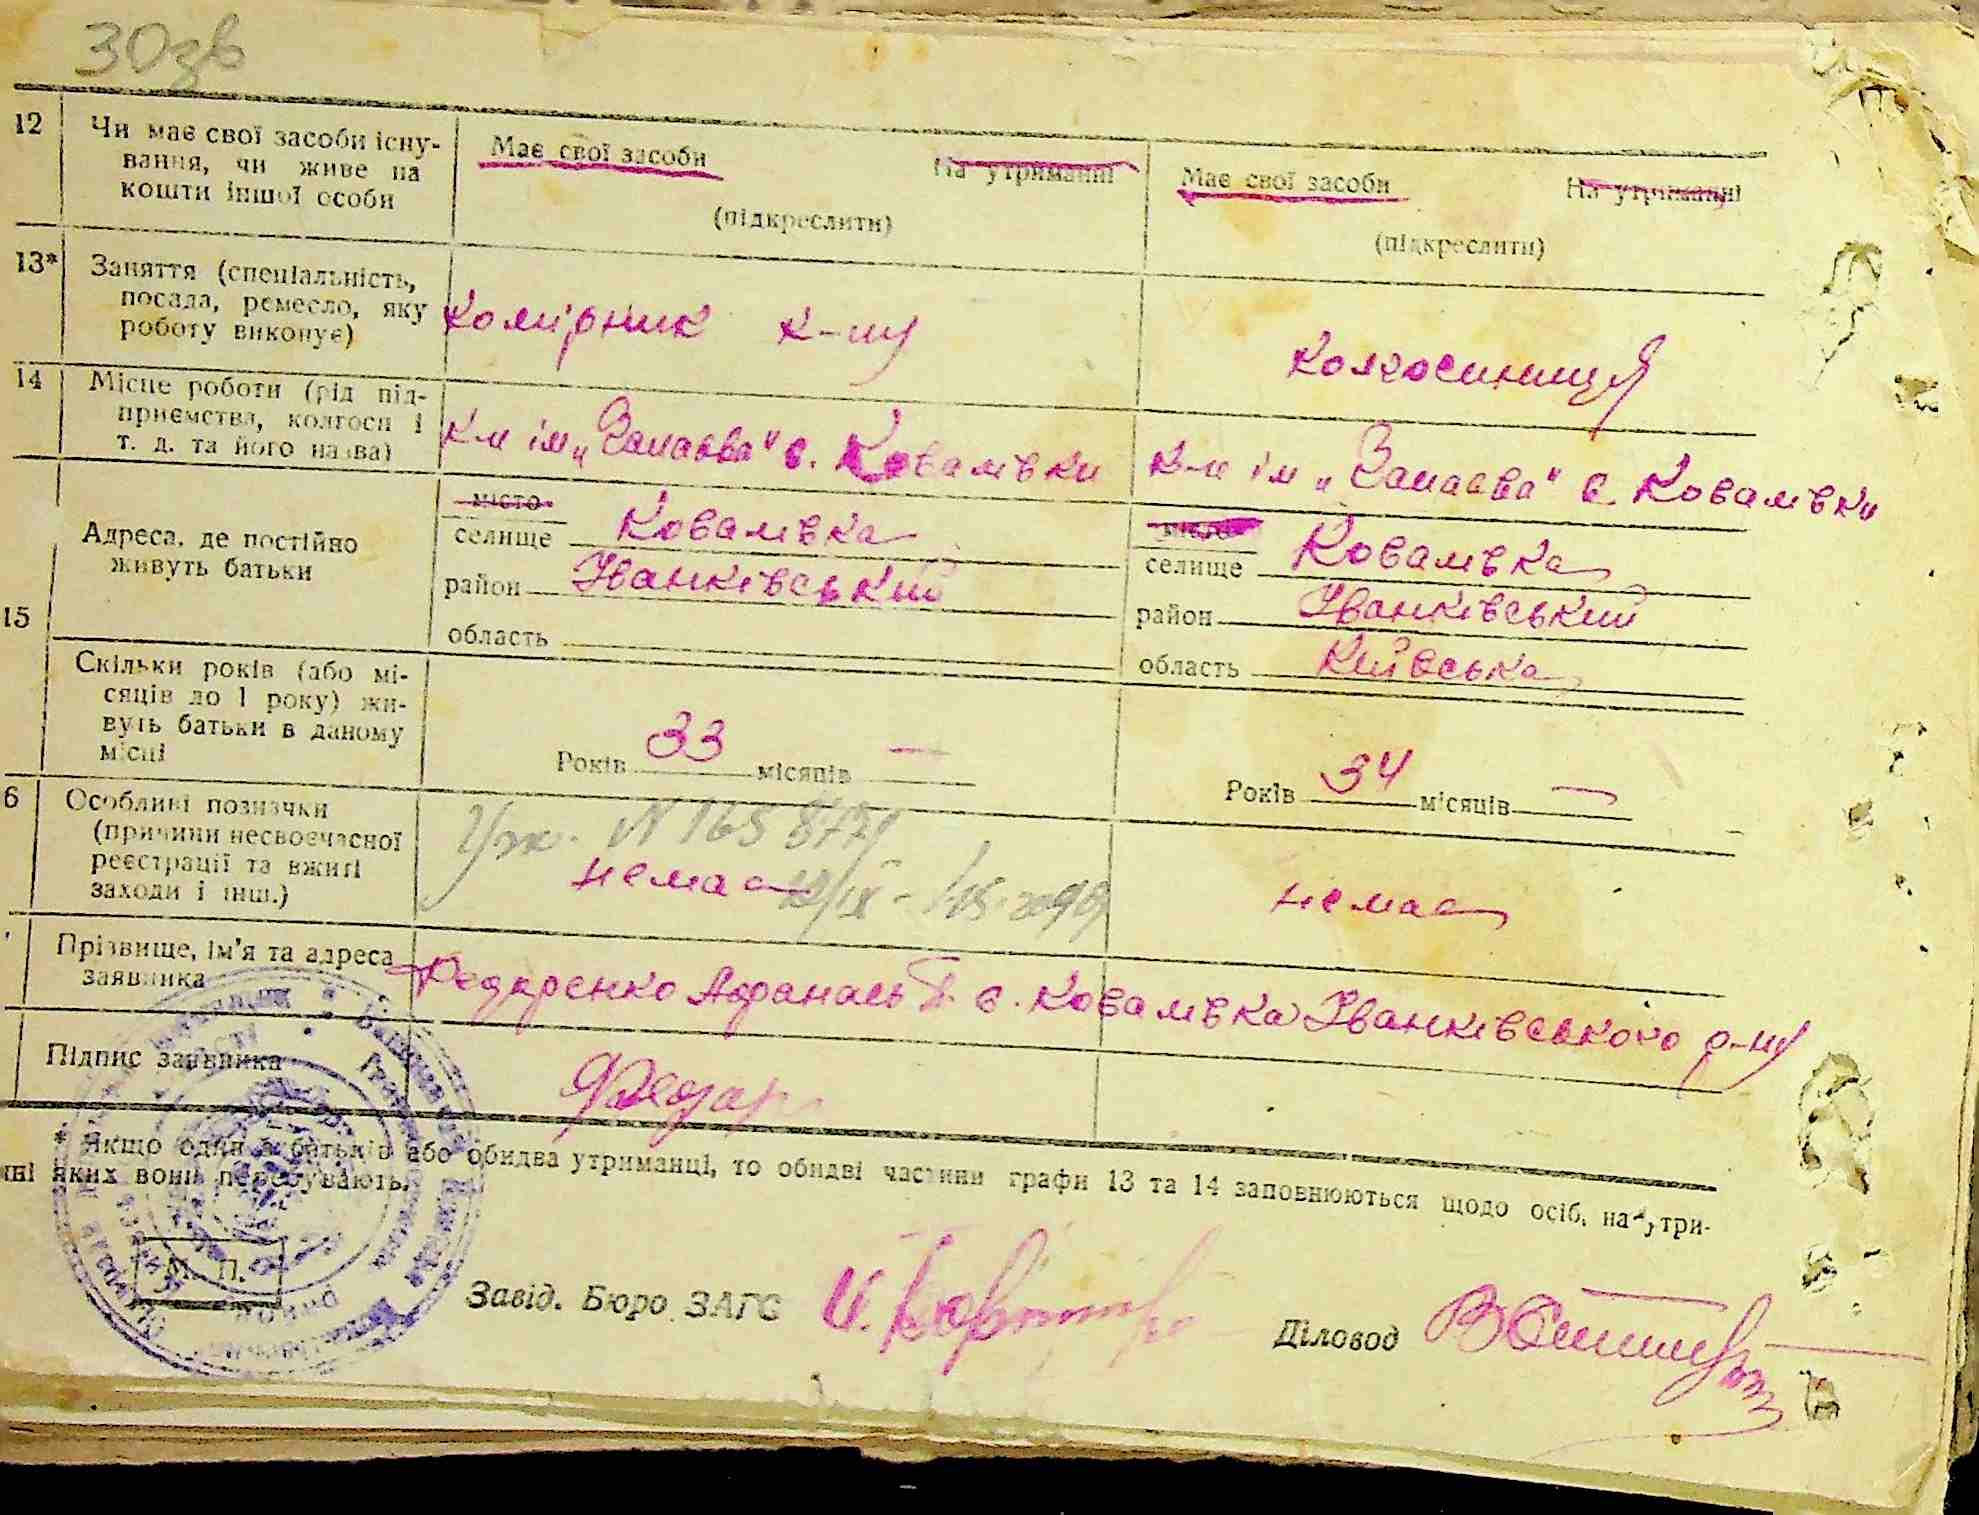 30зв
12 Чи має свої засоби існу-
вання, чи живе на
кошти іншої особи
Має свої засоби На утриманні
(підкреслити)
Має свої засоби На утриманні
(підкреслити)
13* Заняття (спеціальність,
посада, ремесло, яку
роботу виконує)
комірник к-пу
колгоспниця
14 Місце роботи (рід під-
приємства, колгосп і
т. д. та його назва)
к-п ім „Чапаєва" с. Ковалівки
к-п ім „Чапаєва" с. Ковалівки
15
Адреса, де постійно
живуть батьки
місто
селище Ковалівка
район Іванківський
область
місто
селище Ковалівка
район Іванківський
область Київська
Скільки років (або мі-
сяців до 1 року) жи-
вуть батьки в даному
місці
Років 33 місяців —
Років 34 місяців —
6 Особливі позначки
(причини несвоєчасної
реєстрації та вжиті
заходи і інш.)
немає
немає
Прізвище, ім'я та адреса
заявника
Федоренко Афанась с. Ковалівка Іванківського р-ну
Підпис заявника
Федор
* Якщо один з батьків або обидва утриманці, то обидві частини графи 13 та 14 заповнюються щодо осіб, на утри-
нні яких вони перебувають.
М. П.
Завід. Бюро ЗАГС
Діловод